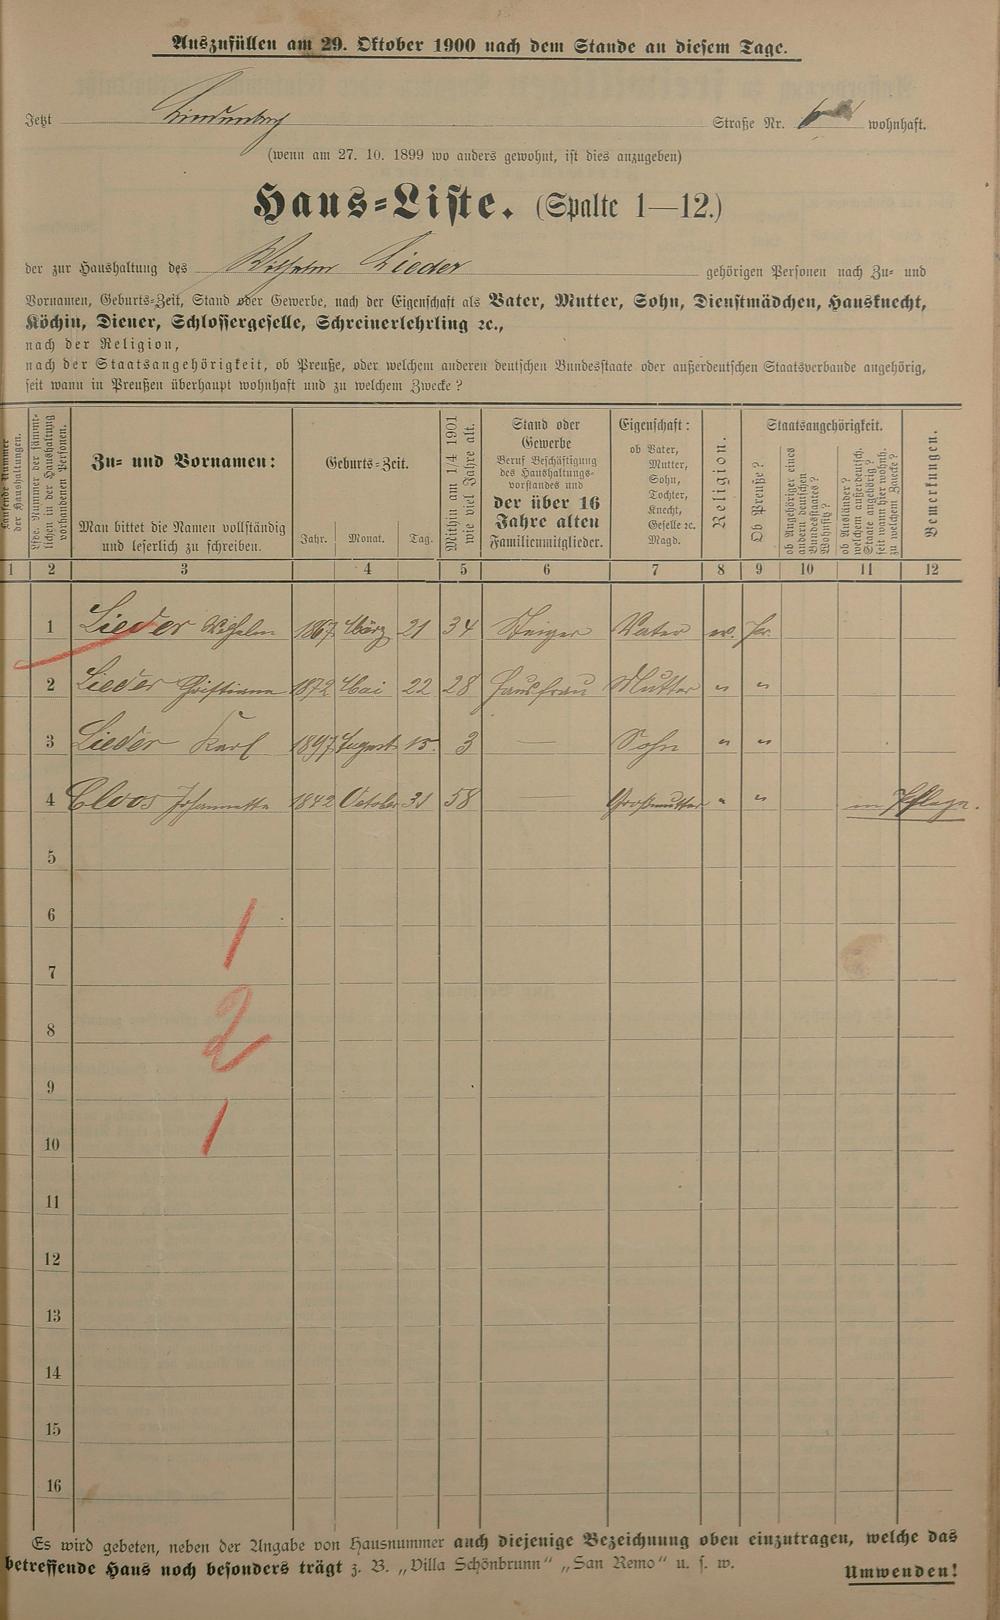 Auszufüllen am 29. Oktober 1900 nach dem Stande an diesem Tage.
Jetzt Lindenberg Straße Nr. 6 wohnhaft.
(wenn am 27. 10. 1899 wo anders gewohnt, ist dies anzugeben)
Haus-Liste. (Spalte 1—12.)
der zur Haushaltung des Wilhelm Lieder gehörigen Personen nach Zu- und
Vornamen, Geburts-Zeit, Stand oder Gewerbe, nach der Eigenschaft als Vater, Mutter, Sohn, Dienstmädchen, Hausknecht,
Köchin, Diener, Schlossergeselle, Schreinerlehrling ꝛc.,
nach der Religion,
nach der Staatsangehörigkeit, ob Preuße, oder welchem anderen deutschen Bundesstaate oder außerdeutschen Staatsverbande angehörig,
seit wann in Preußen überhaupt wohnhaft und zu welchem Zwecke?
Laufende Nummer
der Haushaltungen.
Lfde. Nummer der sämmt-
lichen in der Haushaltung
vorhandenen Personen.
Zu- und Vornamen:
Man bittet die Namen vollständig
und leserlich zu schreiben.
Geburts-Zeit.
Jahr. Monat. Tag.
Mithin am 1/4 1901
wie viel Jahre alt.
Stand oder
Gewerbe
Beruf Beschäftigung
des Haushaltungs-
vorstandes und
der über 16
Jahre alten
Familienmitglieder.
Eigenschaft:
ob Vater,
Mutter,
Sohn,
Tochter,
Knecht,
Geselle ꝛc.
Magd.
Religion.
Staatsangehörigkeit.
Ob Preuße?
ob Angehöriger eines
andern deutschen
Bundesstaates?
Wohnsitz?
ob Ausländer?
welchem außerdeutsch.
Staate angehörig?
seit wann hier wohnh.
zu welchem Zwecke?
Bemerkungen.
1 2 3 4 5 6 7 8 9 10 11 12
1 Lieder Wilhelm 1867 März 21 34 Steiger Vater ev. Pr.
2 Lieder Christiane 1872 Mai 22 28 Hausfrau Mutter " "
3 Lieder Karl 1897 August 15. 3 — Sohn " "
4 Cloos Johannette 1842 October 31 58 — Großmutter " " in Pflege.
5
6
1
7
8 2
9
10 1
11
12
13
14
15
16
Es wird gebeten, neben der Angabe von Hausnummer auch diejenige Bezeichnung oben einzutragen, welche das
betreffende Haus noch besonders trägt z. B. „Villa Schönbrunn" „San Remo" u. s. w.
Umwenden!